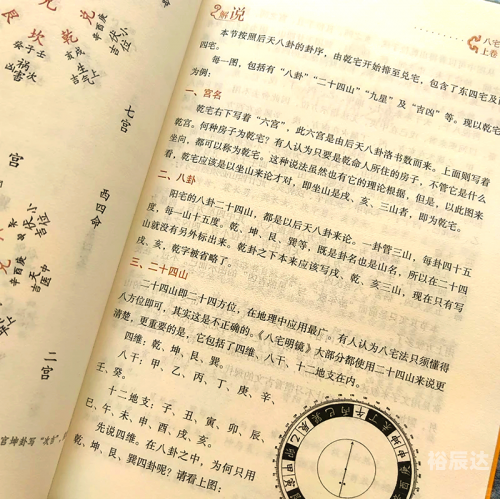 兑
乾
坎
艮
辛酉庚
伏位
小吉
戌亥
生气
上吉
癸子壬
祸害
次凶
七宫
宫
西四命
伏位
辛酉庚
天医
中吉
二宫
宫坤卦写“次吉”，
解说
八宅
上卷
本节按照后天八卦的卦序，由乾宅开始排至兑宅，包含了东四宅及西
四宅。
每一图，包括有“八卦”“二十四山”“九星”及“吉凶”等。现以乾宅
为例：
一、宫名
乾宅右下写着“六宫”，此六宫是由后天八卦洛书数而来。上面则写着
乾宫。何种房子为乾宅？有人认为只要是乾命人所住的房子，不管它是什么
坐向，都可以称为乾宅。这种说法虽然也有它的理论根据，但是，以此图来
看，乾宅应该是以坐山来论才对，即坐山是戌、亥、三山者，即为乾宅。
二、八卦
阳宅的八卦二十四山，都是以后天八卦来论。一卦管三山，每卦四十五
度，每一山十五度。乾、坤、艮、巽等，既是卦名也是山名，所以在二十四
山就没有另外标出来。乾卦之下本来应该写戌、乾、亥三山，现在只有写
戌、亥，乾字被省略了。
三、二十四山
二十四山即二十四方位，在地理中应用最广。有人认为八宅法只须懂得
八方位即可，其实这是不正确的。《八宅明镜》大部分都使用二十四山来说更
清楚，更重要的是，它包括了四维、八干、十二地支在内。
四维：乾、坤、艮、巽。
八干：甲、乙、丙、丁、庚、辛、
壬、癸。
十二地支：子、丑、寅、卯、辰、
巳、午、未、申、酉、戌、亥。
先说四维。在八卦之中，为何只用
乾、坤、艮、巽四卦呢？请看上图：
裕辰达